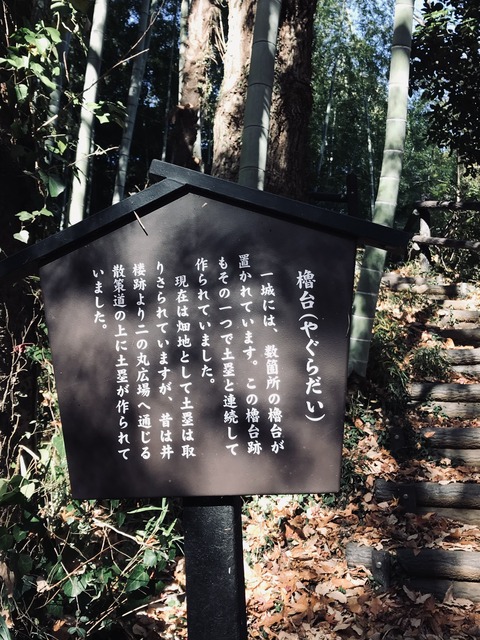 櫓台(やぐらだい)
一城には、数箇所の櫓台が
置かれています。この櫓台跡
もその一つで土塁と連続して
作られていました。
現在は畑地として土塁は取
りさられていますが、昔は井
楼跡より二の丸広場へ通じる
散策道の上に土塁が作られて
いました。